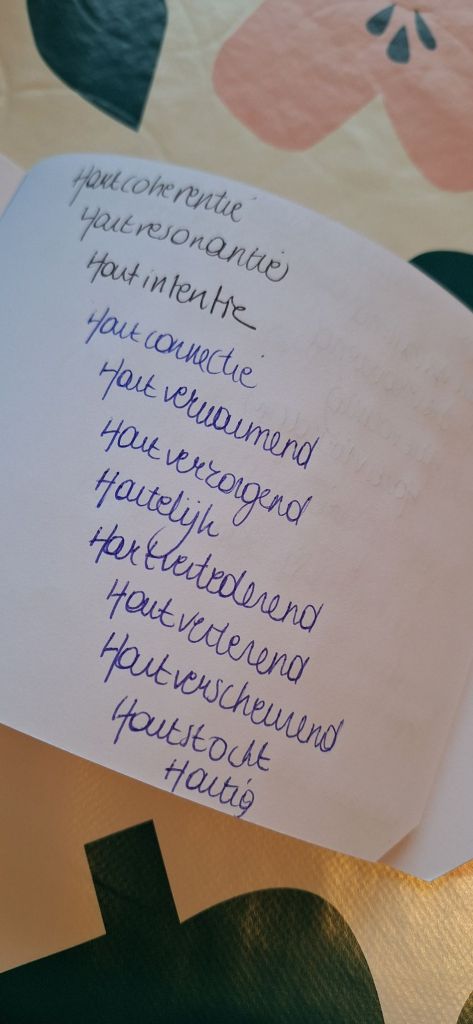 Hartcoherentie
Hartresonantie
Hartintentie
Hartconnectie
Hartverwarmend
Hartverzorgend
Hartelijk
Hartvertederend
Hartverterend
Hartverscheurend
Hartstocht
Hartig